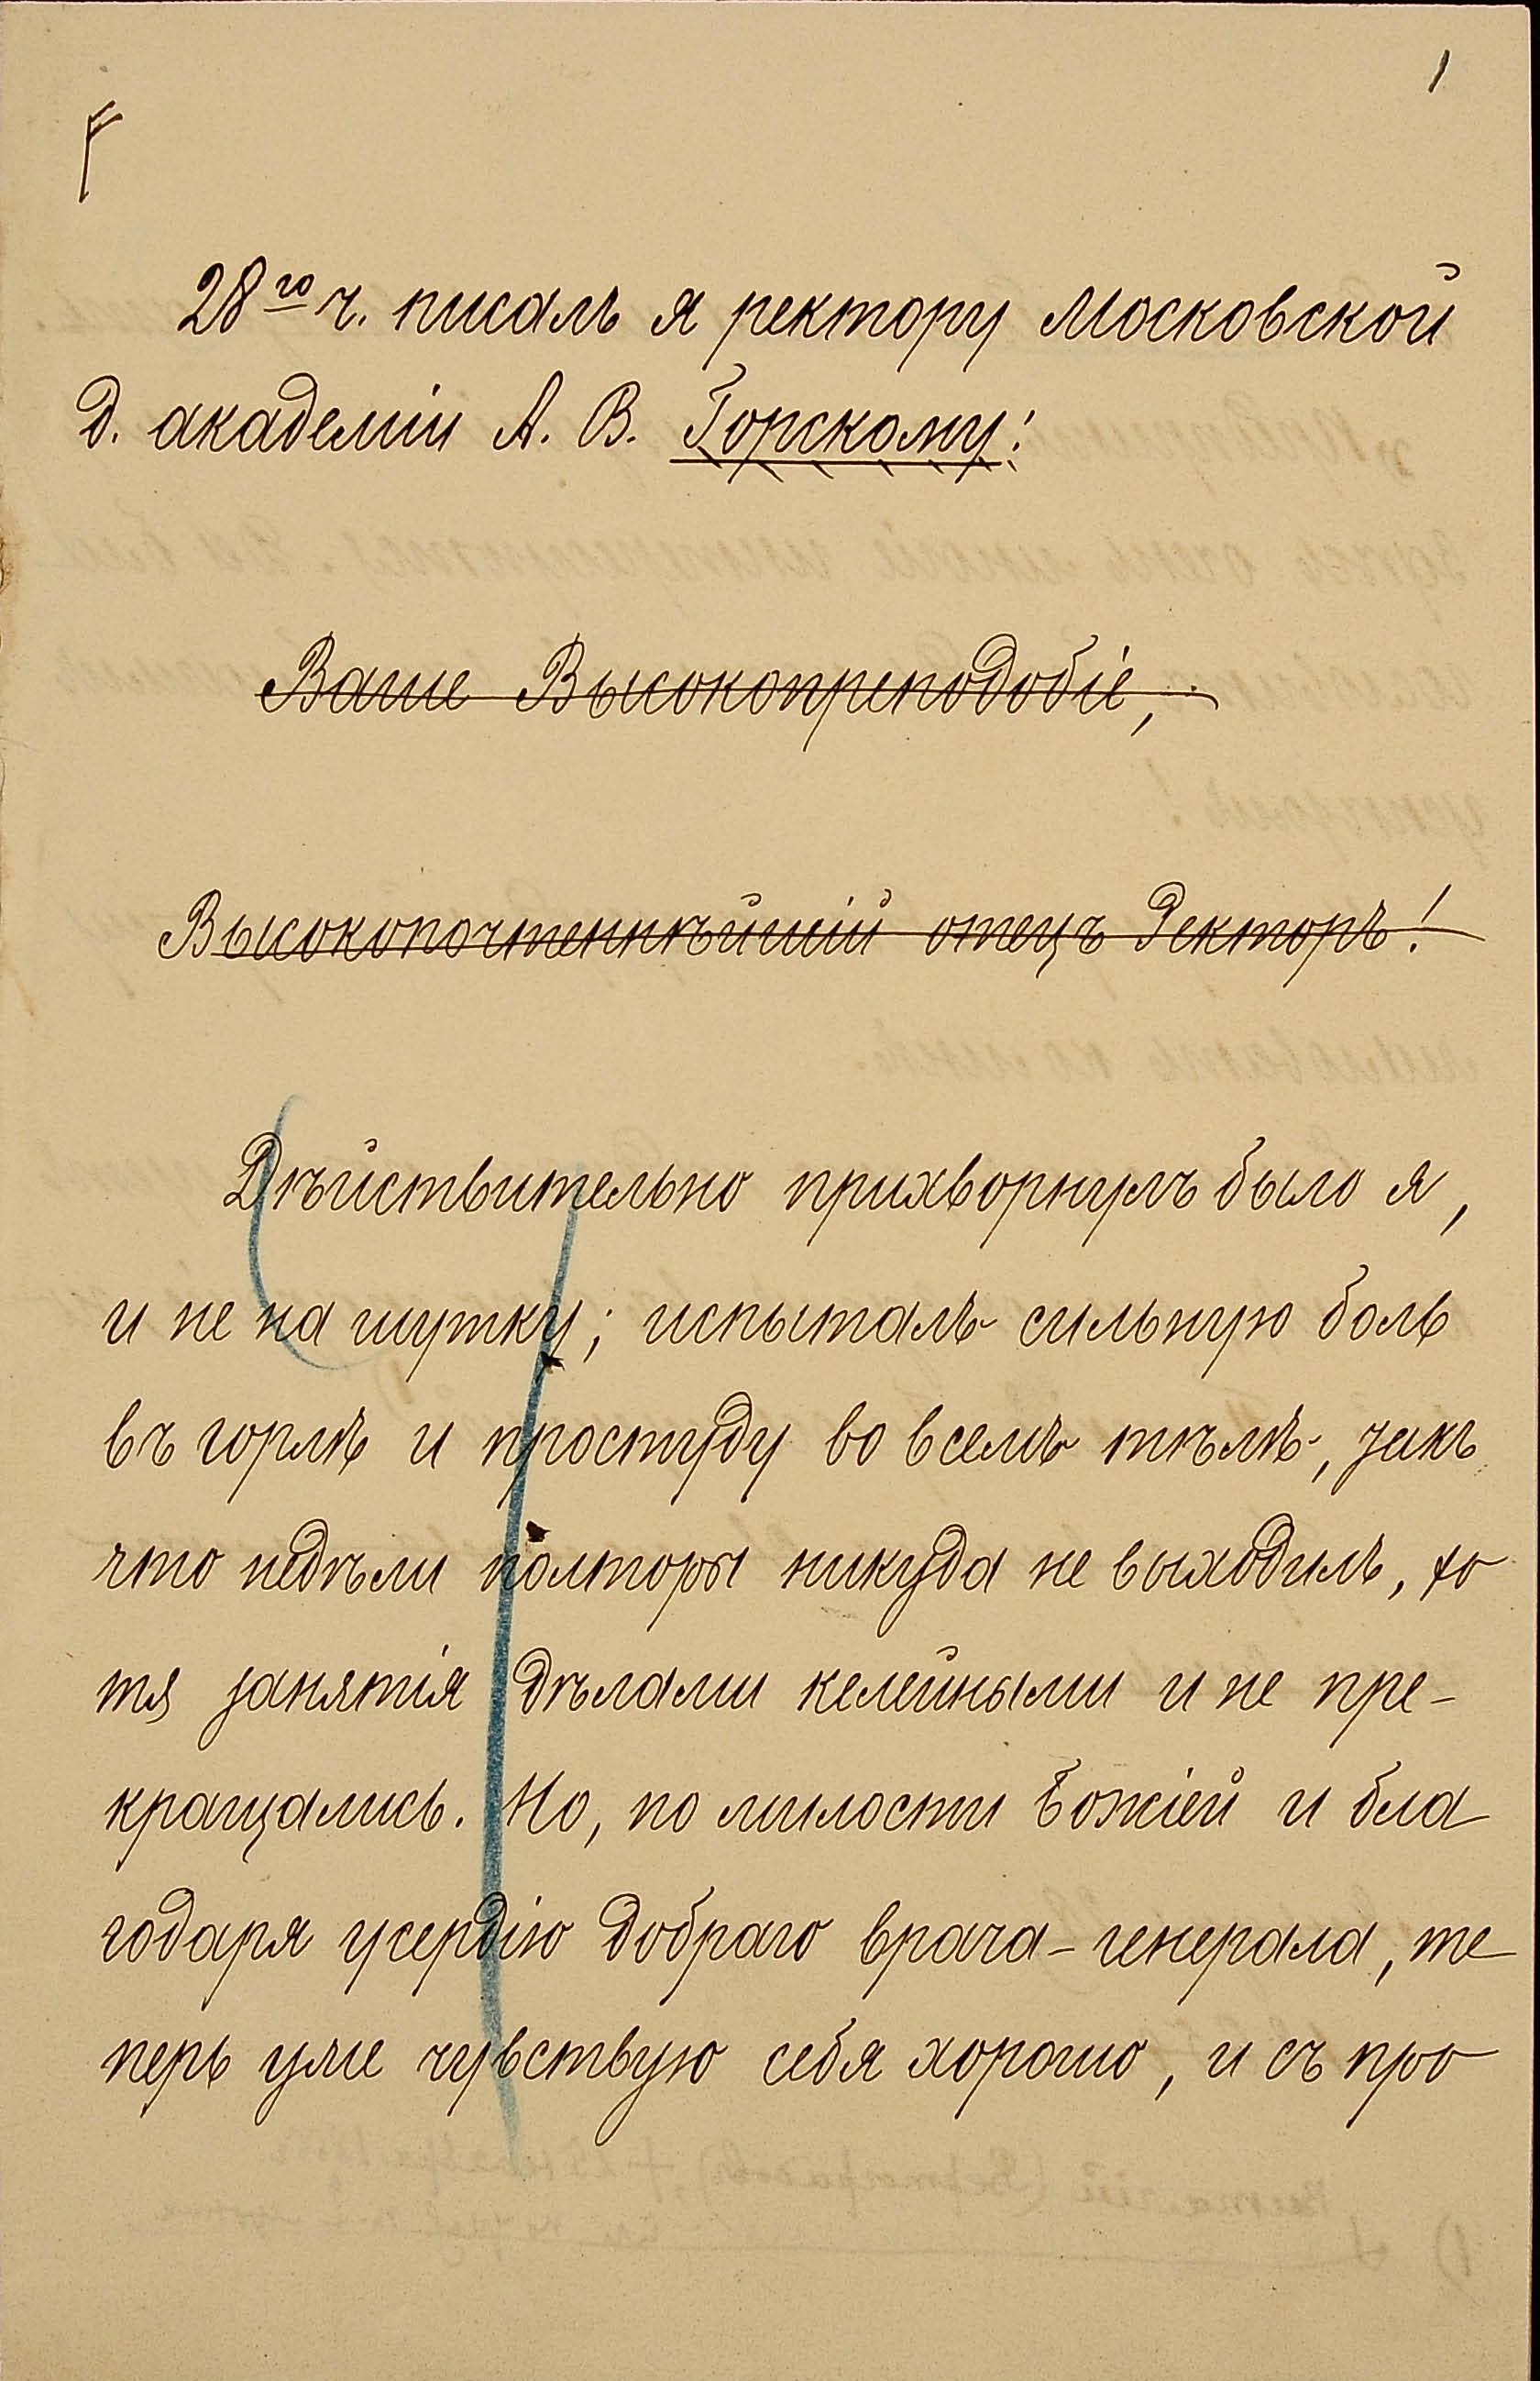 1
28го ч. писалъ я ректору Московской
д. академіи А. В. Горскому:
Ваше Высокопреподобіе,
Высокопочтеннѣйшій отецъ Ректоръ!
Дѣйствительно прихворнулъ было я,
и не на шутку; испыталъ сильную боль
въ горлѣ и простуду во всемъ тѣлѣ, такъ
что недѣли полторы никуда не выходилъ, хо
тя занятія дѣлами келейными и не пре-
кращались. Но, по милости Божіей и бла
годаря усердію добраго врача-генерала, те
перь уже чувствую себя хорошо, и съ про